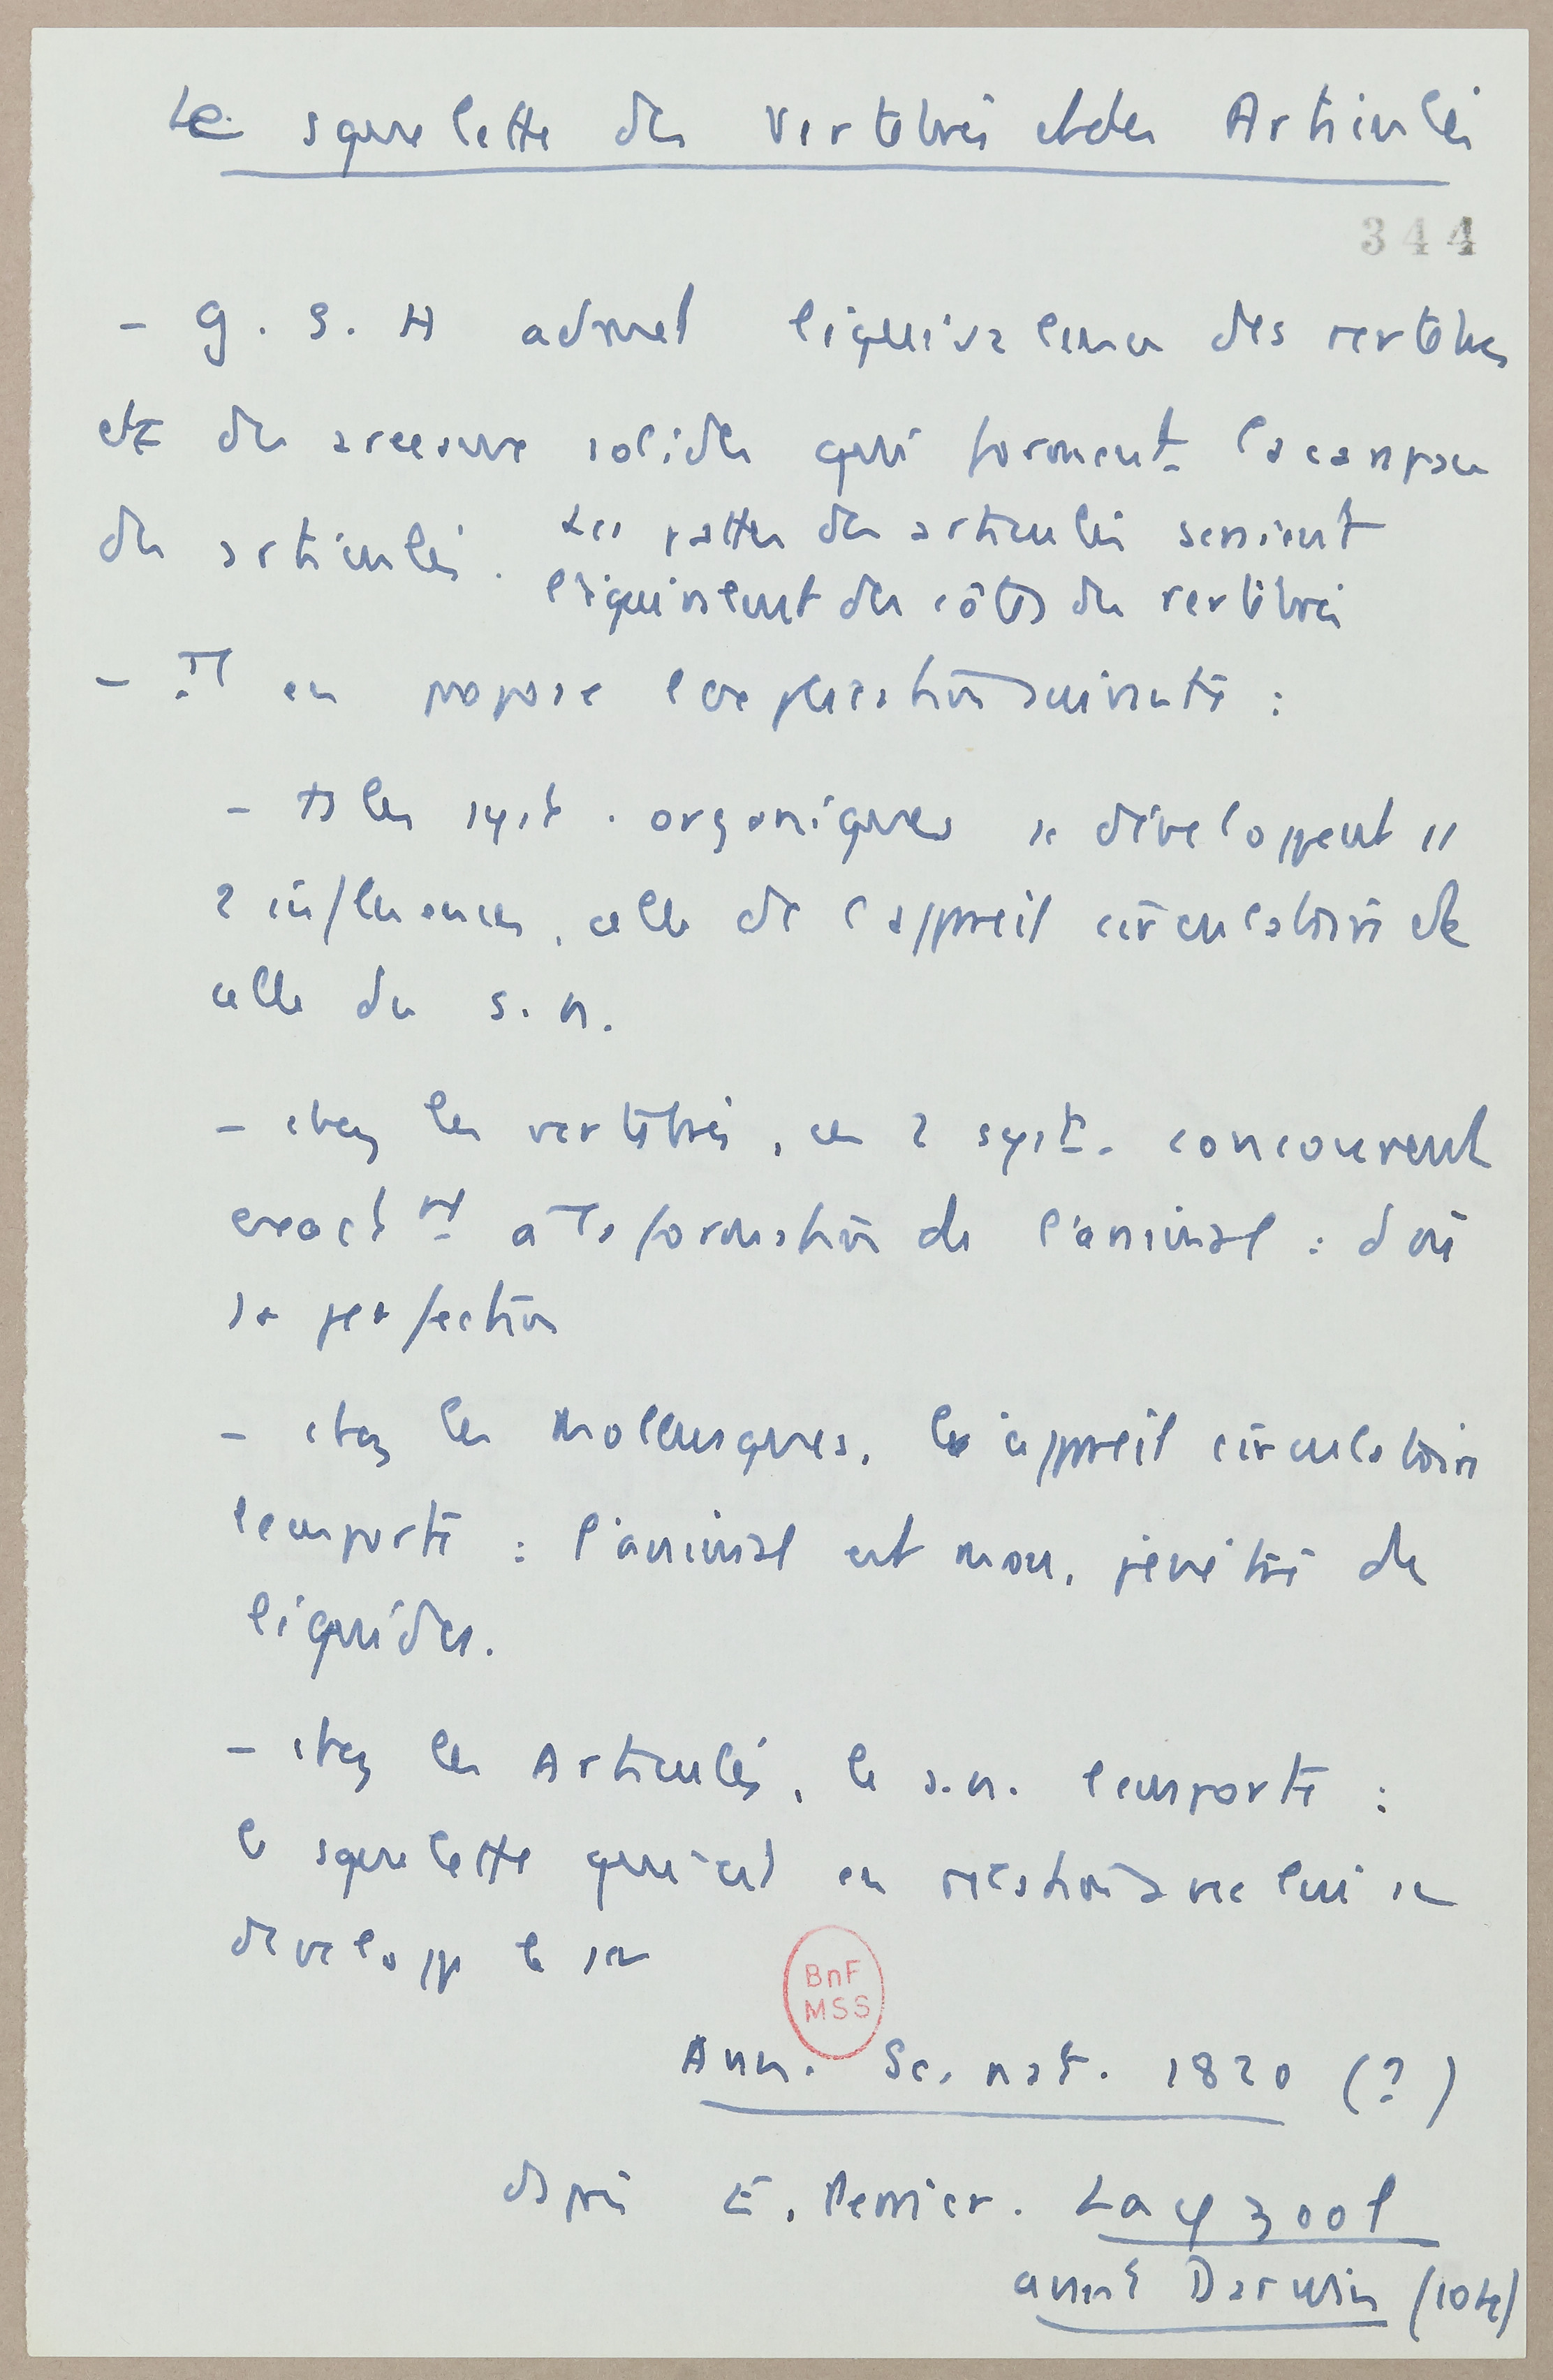 Le squelette des Vertébrés et des Articulés
344
- G. S. H admet l'équivalence des vertèbres
et des anneaux solides qui forment la carapace
des articulés. Les pattes des articulés seraient
l'équivalent des côtes des vertébrés
- Il en propose l'explication suivante :
- ts les syst. organiques se développent ss
2 influences, celle de l'appareil circulatoire et de
celle du s. n.
- chez les vertébrés, ces 2 syst. concourent
exactmt à la formation de l'animal : d'où
sa perfection
- chez les Mollusques, l'appareil circulatoire
l'emporte : l'animal est mou, pénétré de
liquides.
- chez les Articulés, le s.n. l'emporte :
le squelette qui est en relation avec lui se
développe
Ann. Sc. nat. 1820 (?)
d'après E. Perrier. La φ zool
avant Darwin (104)
BnF
MSS